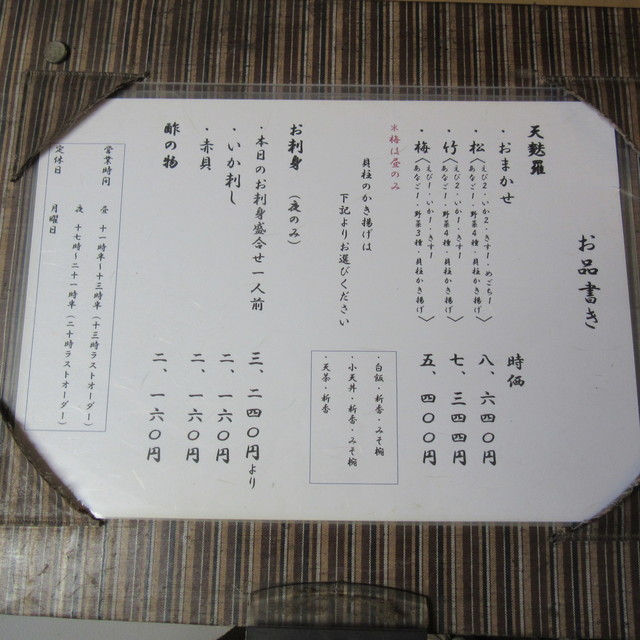 お品書き
天麩羅
・おまかせ 時価
・松〈えび2・いか2・きす1・めごち1・あなご1・野菜4種・貝柱かき揚げ〉 八、六四〇円
・竹〈えび2・いか1・きす1・あなご1・野菜4種・貝柱かき揚げ〉 七、三四四円
・梅〈えび1・いか1・きす1・あなご1・野菜3種・貝柱かき揚げ〉 五、四〇〇円
※梅は昼のみ
貝柱のかき揚げは
下記よりお選びください
・白飯・新香・みそ椀
・小天丼・新香・みそ椀
・天茶・新香
お刺身 (夜のみ)
・本日のお刺身盛合せ一人前 三、二四〇円より
・いか刺し 二、一六〇円
・赤貝 二、一六〇円
酢の物 二、一六〇円
営業時間 昼 十一時半〜十三時半(十三時ラストオーダー)
夜 十七時〜二十一時半(二十時ラストオーダー)
定休日 月曜日